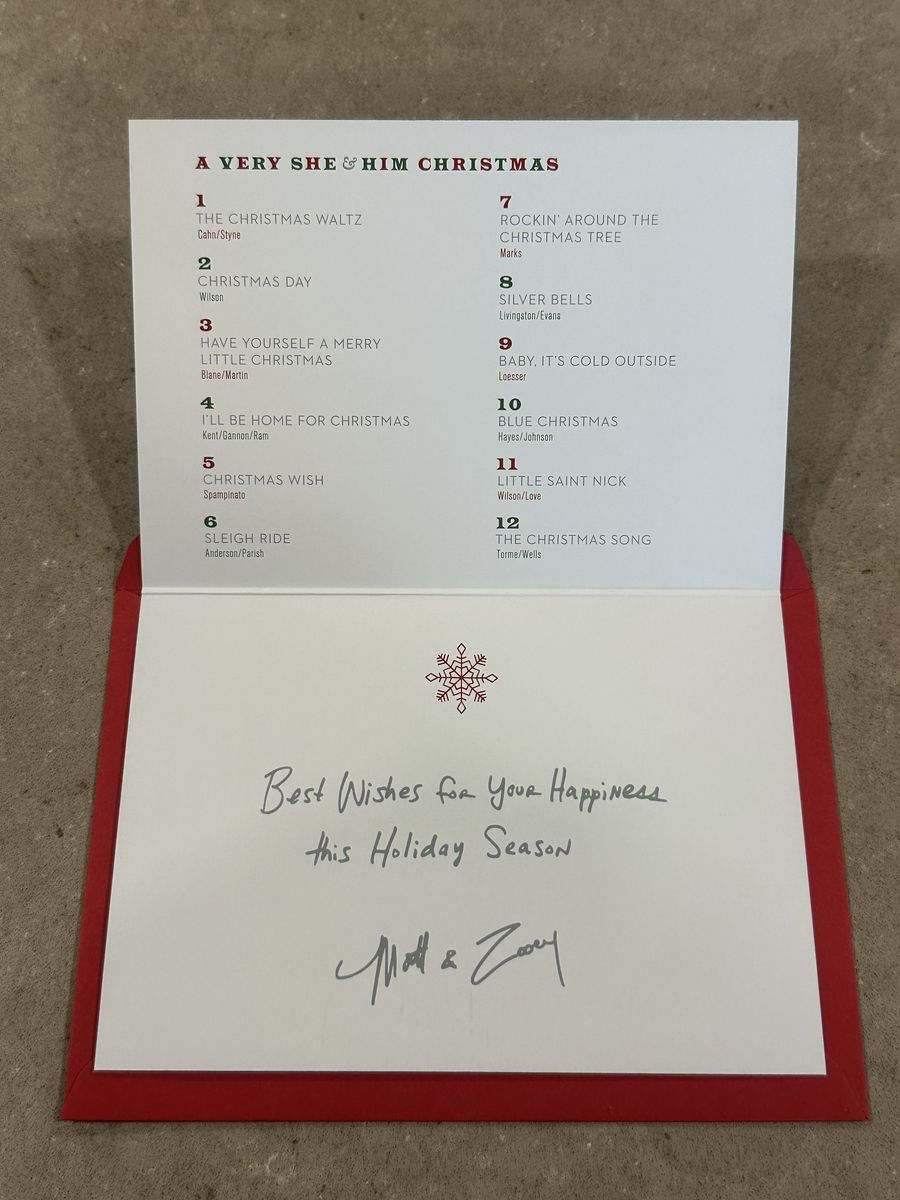 A VERY SHE & HIM CHRISTMAS
1
THE CHRISTMAS WALTZ
Cahn/Styne
2
CHRISTMAS DAY
Wilson
3
HAVE YOURSELF A MERRY
LITTLE CHRISTMAS
Blane/Martin
4
I'LL BE HOME FOR CHRISTMAS
Kent/Gannon/Ram
5
CHRISTMAS WISH
Spampinato
6
SLEIGH RIDE
Anderson/Parish
7
ROCKIN' AROUND THE
CHRISTMAS TREE
Marks
8
SILVER BELLS
Livingston/Evans
9
BABY, IT'S COLD OUTSIDE
Loesser
10
BLUE CHRISTMAS
Hayes/Johnson
11
LITTLE SAINT NICK
Wilson/Love
12
THE CHRISTMAS SONG
Torme/Wells
Best Wishes for Your Happiness
this Holiday Season
Matt & Zooey